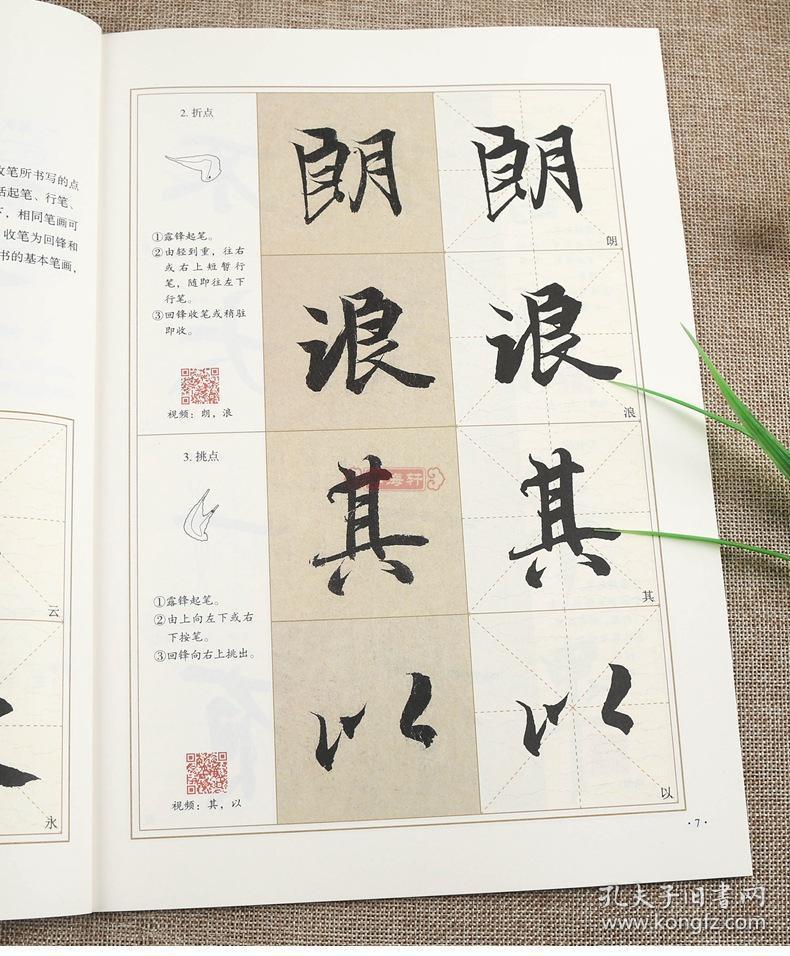 收笔所书写的点
括起笔、行笔、
下，相同笔画可
收笔为回锋和
书的基本笔画，
云
永
2. 折点
①露锋起笔。
②由轻到重，往右
或右上短暂行
笔，随即往左下
行笔。
③回锋收笔或稍驻
即收。
视频：朗，浪
朗
朗
朗
浪
浪
浪
3. 挑点
①露锋起笔。
②由上向左下或右
下按笔。
③回锋向右上挑出。
视频：其，以
其
其
其
以
以
以
海轩
·7·
孔夫子旧书网
www.kongfz.com